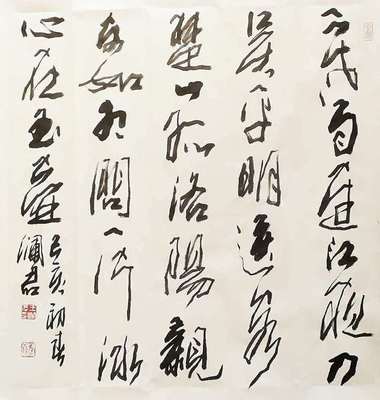 寒雨連江夜入
吴平明送客
楚山孤洛陽親
友如相問一片冰
心在玉壺
己亥初春